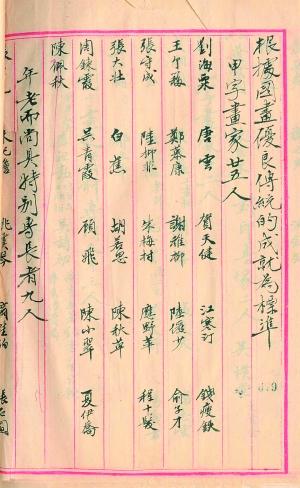 根據國畫優良傳統的成就爲標準
甲字畫家廿五人
劉海粟 唐雲 賀天健 江寒汀 錢瘦鐵
王个簃 鄭慕康 謝稚柳 陸儼少 俞子才
張守成 陸抑非 朱梅村 應野苹 程十髮
張大壯 白蕉 胡若思 陳秋草
周鍊霞 吳青霞 顧飛 陳小翠 夏伊喬
陳佩秋
年老而尚具特別專長者九人